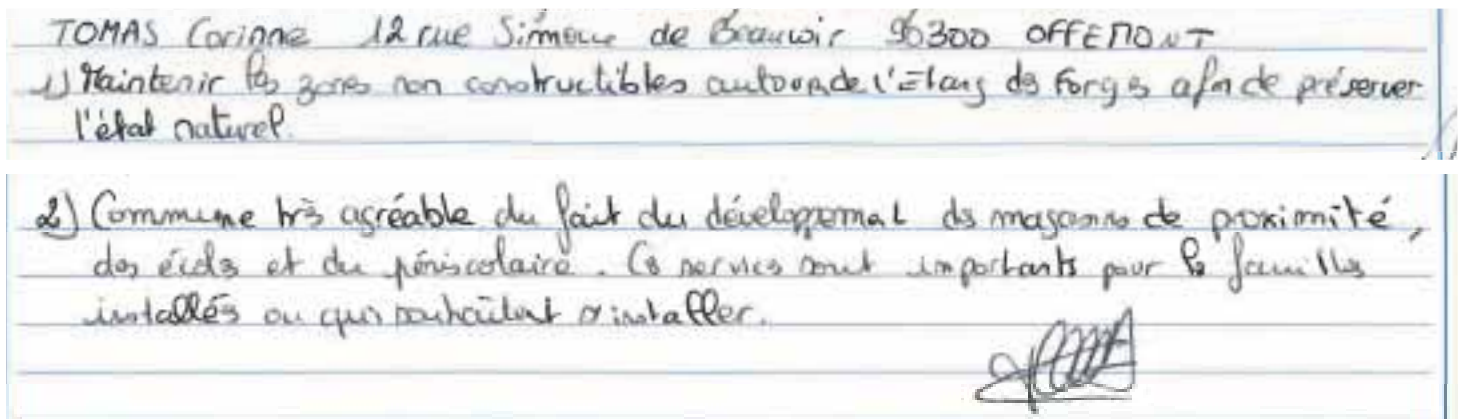 TOMAS Corinne 12 rue Simone de Beauvoir 90300 OFFEMONT
1) Maintenir les zones non constructibles autour de l'Etang des Forges afin de préserver
l'état naturel.
2) Commune très agréable du fait du développement des magasins de proximité,
des écoles et du périscolaire. Ces services sont importants pour les familles
installés ou qui souhaitent s'installer.